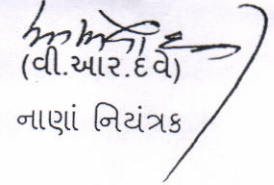 (વી.આર.દવે)
નાણાં નિયંત્રક